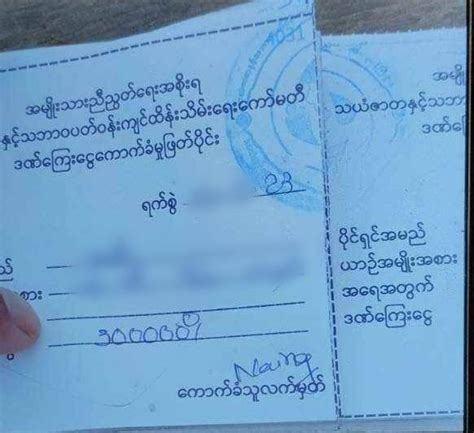 2021
အမျိုးသားညီညွတ်ရေးအစိုးရ
နှင့်သဘာဝပတ်ဝန်းကျင်ထိန်းသိမ်းရေးကော်မတီ
ဒဏ်ကြေးငွေကောက်ခံမှုဖြတ်ပိုင်း
ရက်စွဲ 23
ည်
စား
300000ိ/
Naung
ကောက်ခံသူလက်မှတ်
အမျိ
သယံဇာတနှင့်သဘာ
ဒဏ်
ပိုင်ရှင်အမည်
ယာဉ်အမျိုးအစား
အရေအတွက်
ဒဏ်ကြေးငွေ